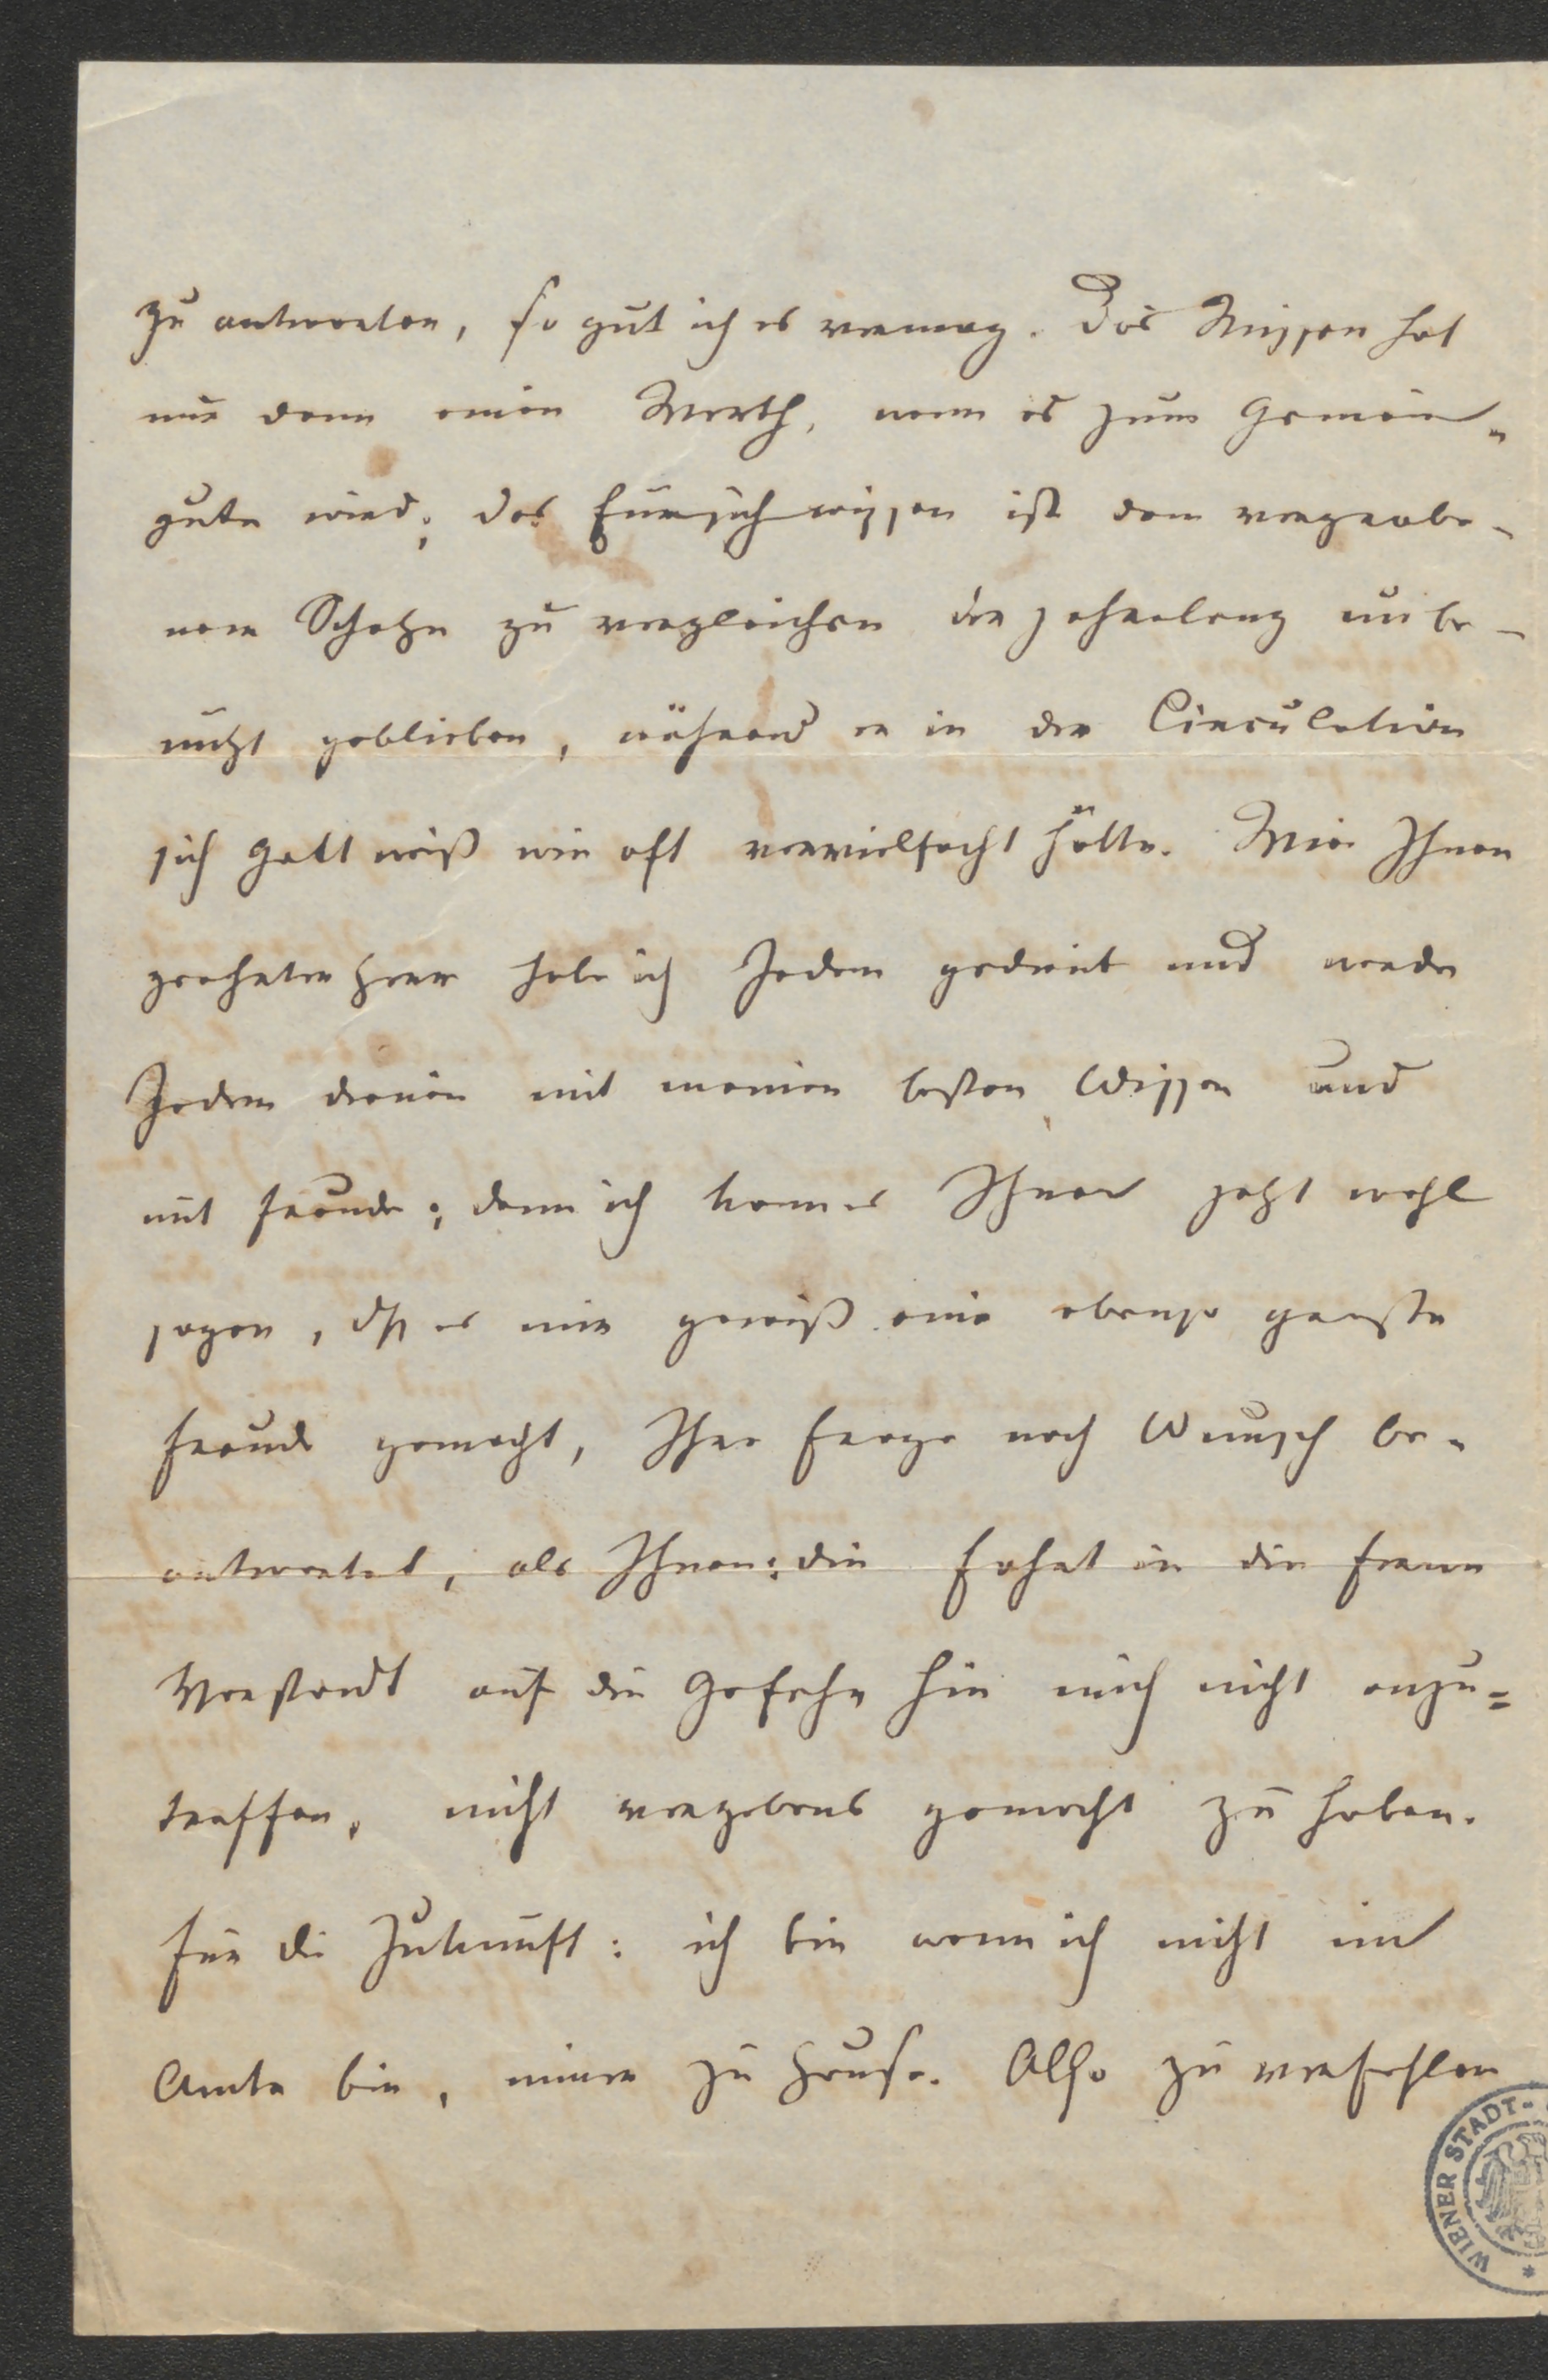 zu antworten, so gut ich es vermag. Das Wissen hat
nur dann einen Werth, wenn es zum Gemein-
gute wird; das Fürsichwissen ist dem vergrabe-
nen Schatze zu vergleichen der jahrelang unbe-
nützt geblieben, während er in der Circulation
sich Gott weiß wie oft vervielfacht hätte. Wie Ihnen
geehrter Herr habe ich Jedem gedient und werde
Jedem dienen mit meinen besten Wissen und
mit Freude; denn ich kann es Ihnen jetzt wohl
sagen, dß es mir gewiß eine ebenso große
Freude gemacht, Ihre Frage nach Wunsch be-
antwortet, als Ihnen: die Fahrt in die ferne
Vorstadt auf die Gefahr hin mich nicht anzu=
treffen, nicht vergebens gemacht zu haben.
Für die Zukunft: ich bin wenn ich nicht im
Amte bin, immer zu Hause. Also zu verfehlen
WIENER STADT-